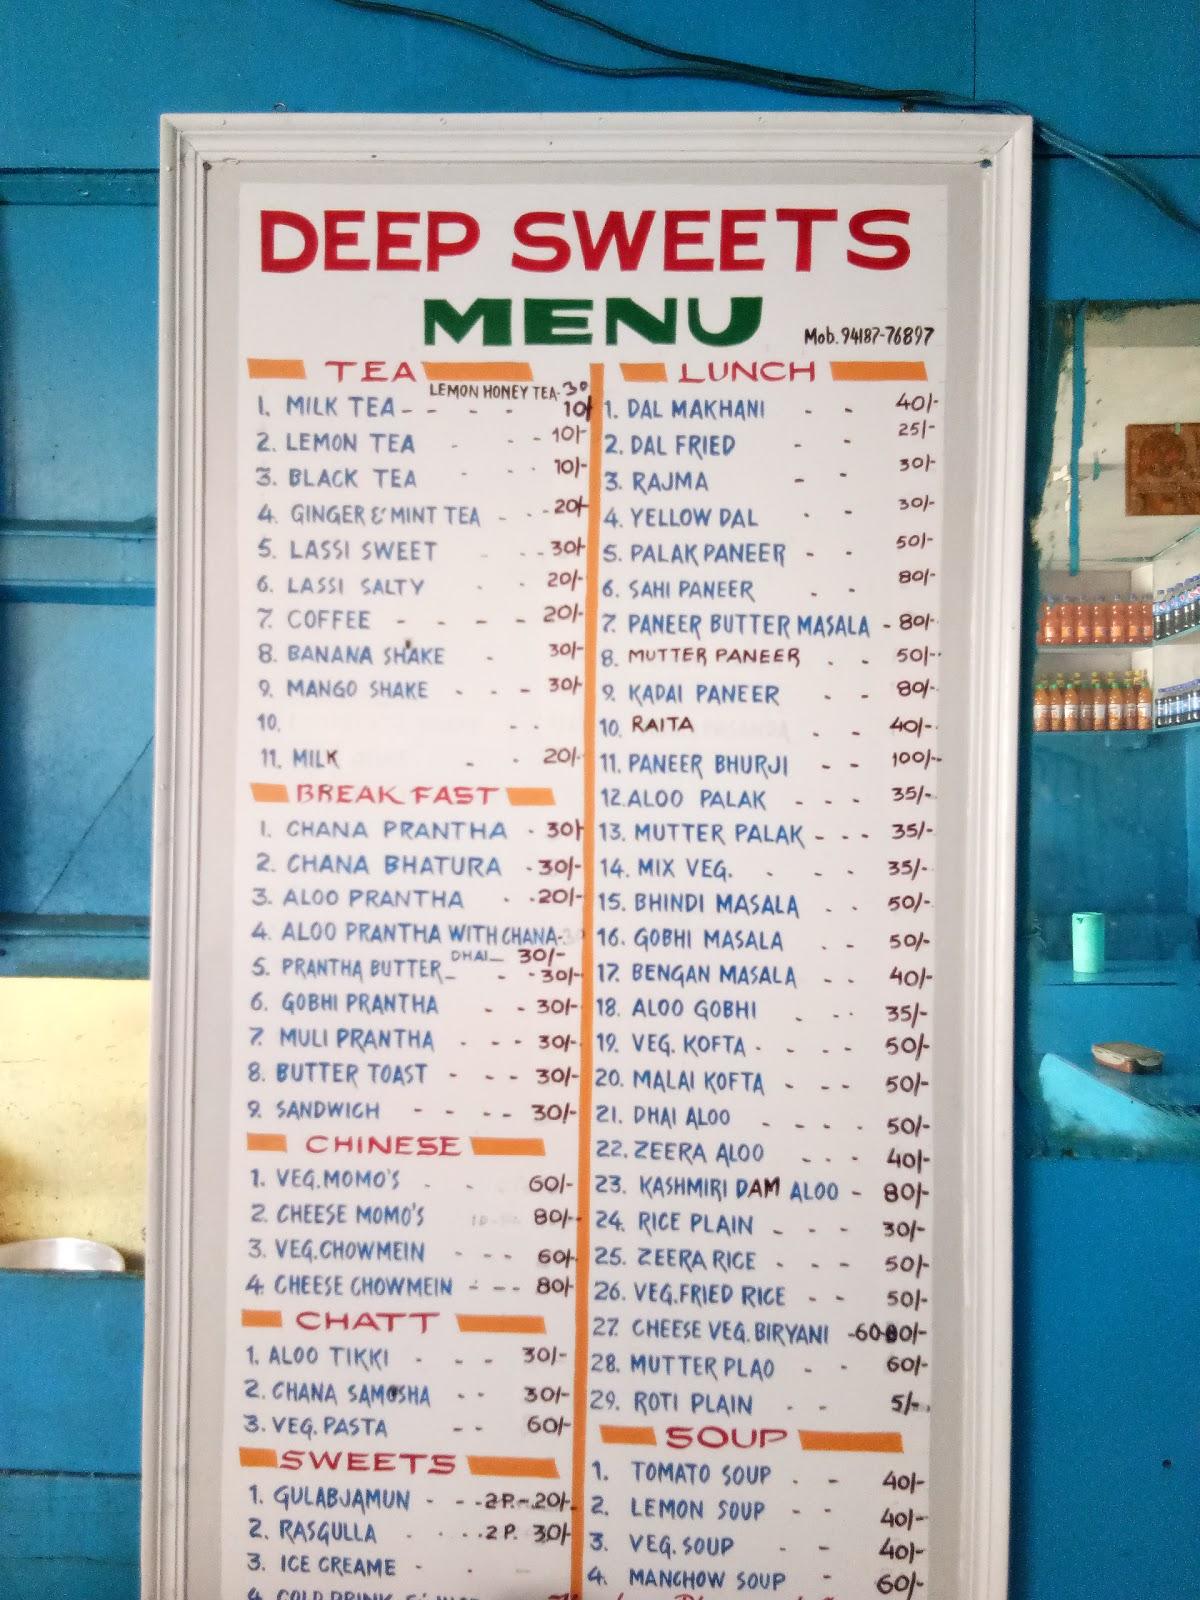 DEEP SWEETS
MENU
Mob. 94187-76897
TEA
LEMON HONEY TEA-30
1. MILK TEA - - - - 10/
2. LEMON TEA - - - 10/-
3. BLACK TEA - - - 10/-
4. GINGER & MINT TEA - - - 20/-
5. LASSI SWEET - - - 30/-
6. LASSI SALTY - - 20/-
7. COFFEE - - - - 20/-
8. BANANA SHAKE - 30/-
9. MANGO SHAKE - - - 30/-
10. - -
11. MILK - - 20/-
BREAK FAST
1. CHANA PRANTHA - 30/-
2. CHANA BHATURA - 30/-
3. ALOO PRANTHA - - 20/-
4. ALOO PRANTHA WITH CHANA-30
DHAI - 30/-
5. PRANTHA BUTTER - - - 30/-
6. GOBHI PRANTHA - - 30/-
7. MULI PRANTHA - - - 30/-
8. BUTTER TOAST - - - 30/-
9. SANDWICH - - - - 30/-
CHINESE
1. VEG.MOMO'S - - 60/-
2. CHEESE MOMO'S 80/-
3. VEG.CHOWMEIN - - - 60/-
4. CHEESE CHOWMEIN - - - 80/-
CHATT
1. ALOO TIKKI - - - 30/-
2. CHANA SAMOSHA - - 30/-
3. VEG. PASTA - - 60/-
SWEETS
1. GULABJAMUN - - - 2P.- 20/-
2. RASGULLA - - - 2 P. 30/-
3. ICE CREAME -
4. COLD DRINK
LUNCH
1. DAL MAKHANI - - 40/-
2. DAL FRIED - - 25/-
3. RAJMA - - 30/-
4. YELLOW DAL - - 30/-
5. PALAK PANEER - - 50/-
6. SAHI PANEER - - 80/-
7. PANEER BUTTER MASALA - 80/-
8. MUTTER PANEER - - 50/-
9. KADAI PANEER - - 80/-
10. RAITA - - 40/-
11. PANEER BHURJI - - 100/-
12. ALOO PALAK - - - 35/-
13. MUTTER PALAK - - - 35/-
14. MIX VEG. - - - 35/-
15. BHINDI MASALA - - 50/-
16. GOBHI MASALA - - 50/-
17. BENGAN MASALA - - 40/-
18. ALOO GOBHI - - - 35/-
19. VEG. KOFTA - - - - 50/-
20. MALAI KOFTA - - - 50/-
21. DHAI ALOO - - - - 50/-
22. ZEERA ALOO - - - 40/-
23. KASHMIRI DAM ALOO - 80/-
24. RICE PLAIN - - - 30/-
25. ZEERA RICE - - - 50/-
26. VEG.FRIED RICE - - 50/-
27. CHEESE VEG. BIRYANI -60-80/-
28. MUTTER PLAO - - 60/-
29. ROTI PLAIN - - 5/-
SOUP
1. TOMATO SOUP - - 40/-
2. LEMON SOUP - - 40/-
3. VEG. SOUP - - 40/-
4. MANCHOW SOUP - 60/-